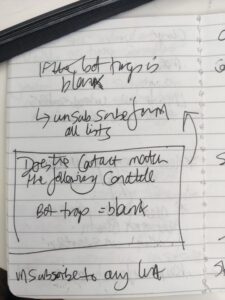 If the bot trap is
blank
↳ unsubscribe from
all lists
Does the contact match
the following condition
Bot trap = blank
unsubscribe to any list